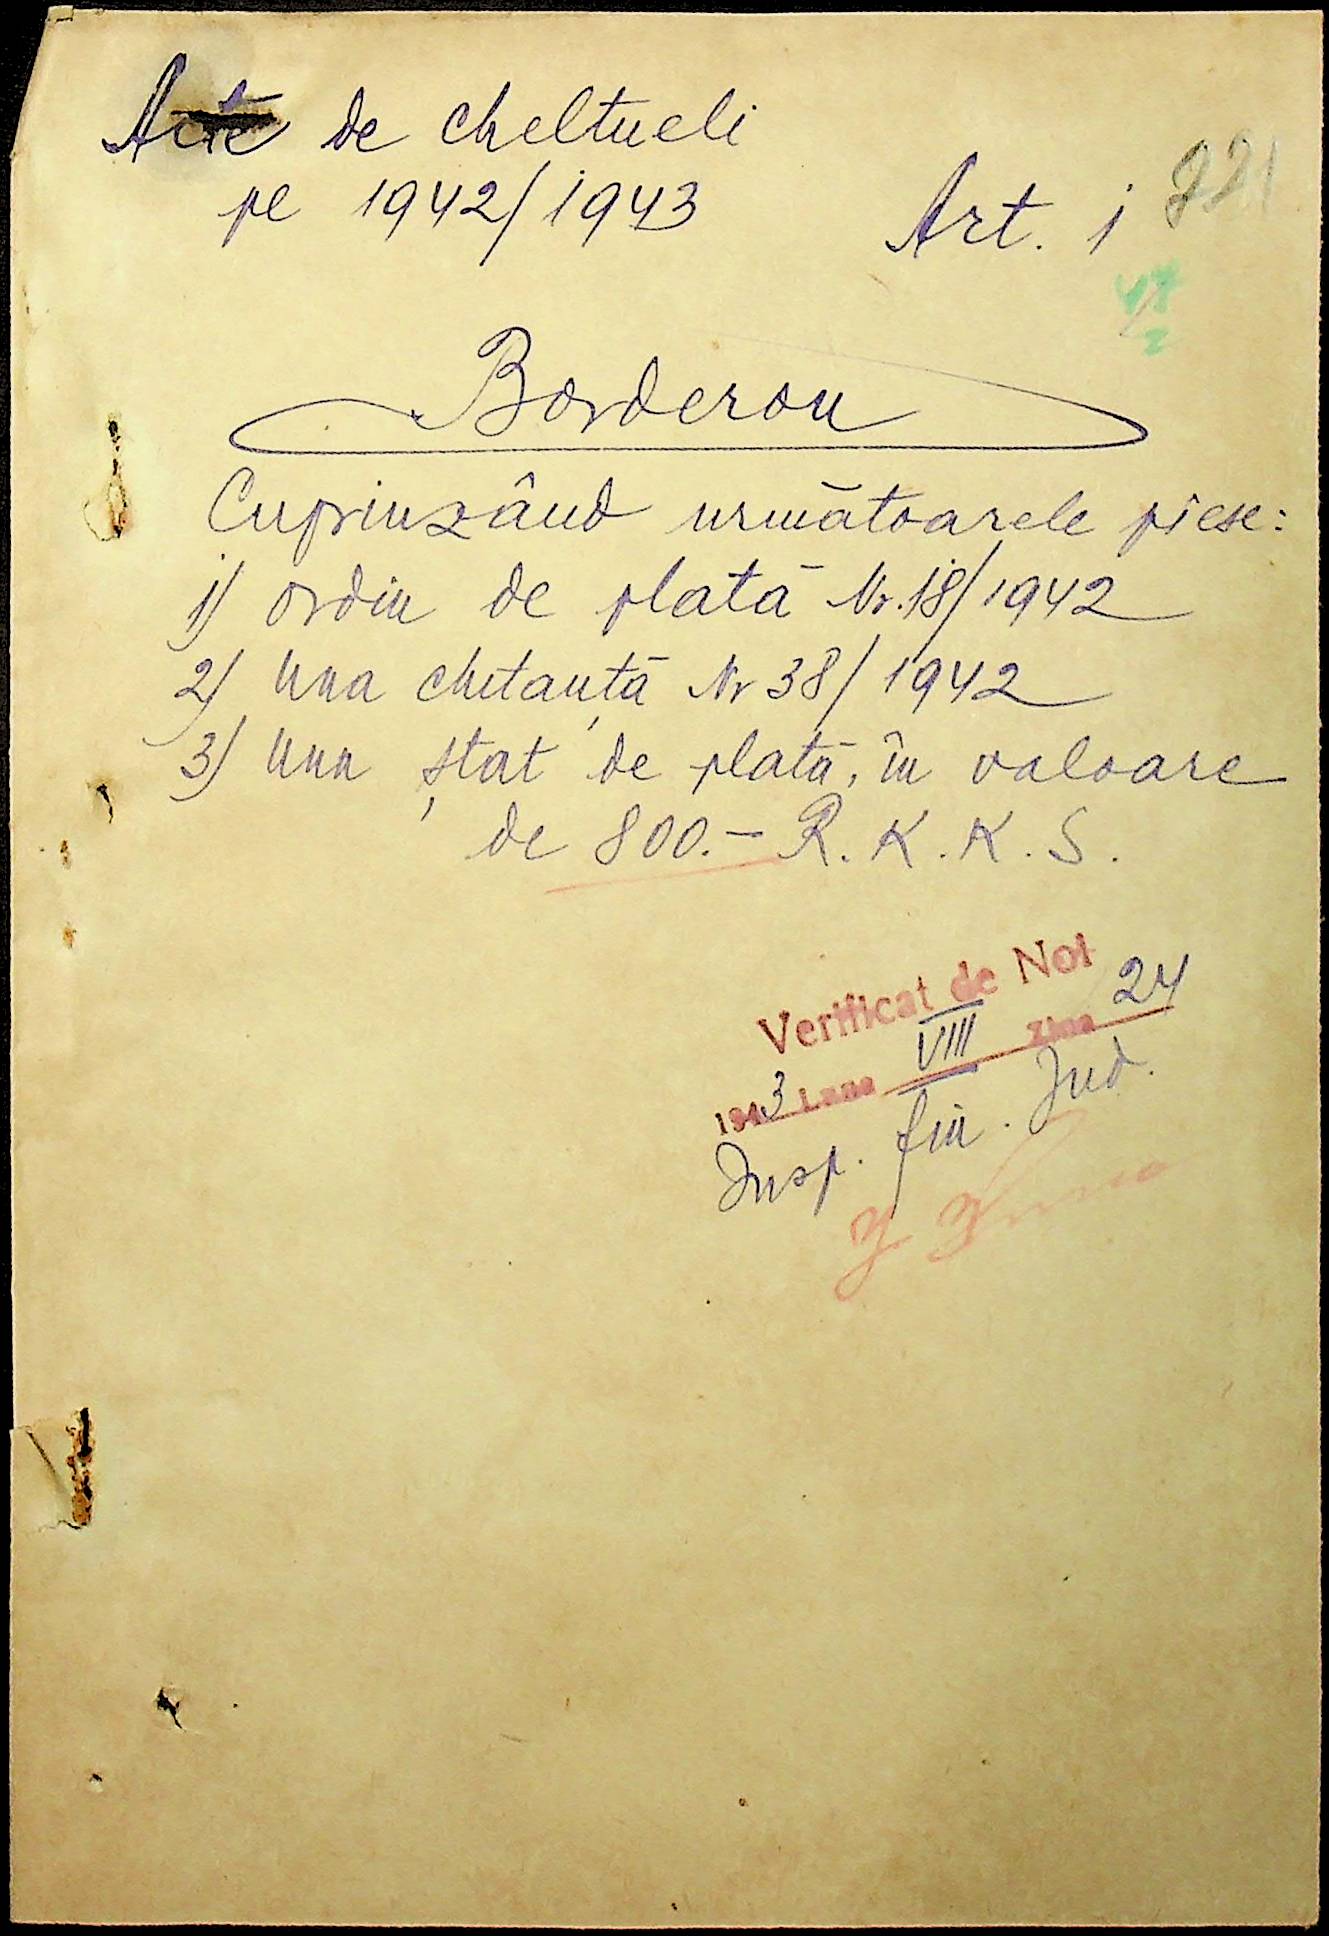 Acte de cheltueli
pe 1942/1943
Art. 1
221
Borderou
Cuprinzând următoarele piese:
1) ordin de plată Nr. 18/1942
2) una chitanță Nr 38/1942
3) un ștat de plată, în valoare
de 800.- R. K. K. S.
Verificat de Noi
1943 Luna VIII Ziua 24
Insp. fin. Jud.